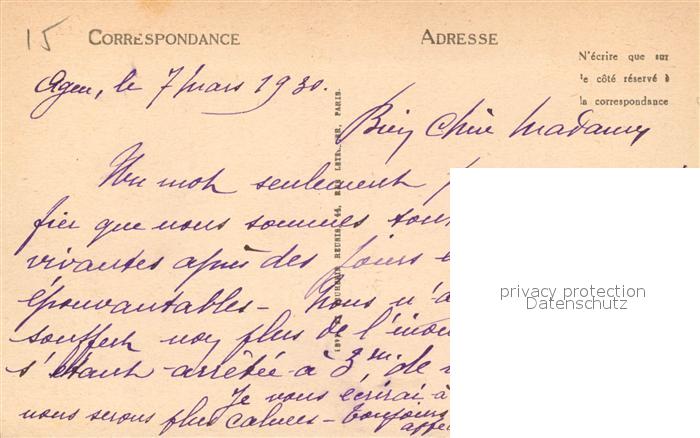 15
CORRESPONDANCE
ADRESSE
N'écrire que sur
le côté réservé à
la correspondance
Agen, le 7 mars 1930.
Bien Chère Madame
Un mot seulement
fier que nous sommes tou
vivantes après des jours e
épouvantables - Nous n'a
souffert non plus de l'inon
s'étant arrêtée à 3m, de
Je vous écrirai à
nous serons plus calmes - Toujours
affec
44, RUE PARIS.
privacy protection
Datenschutz